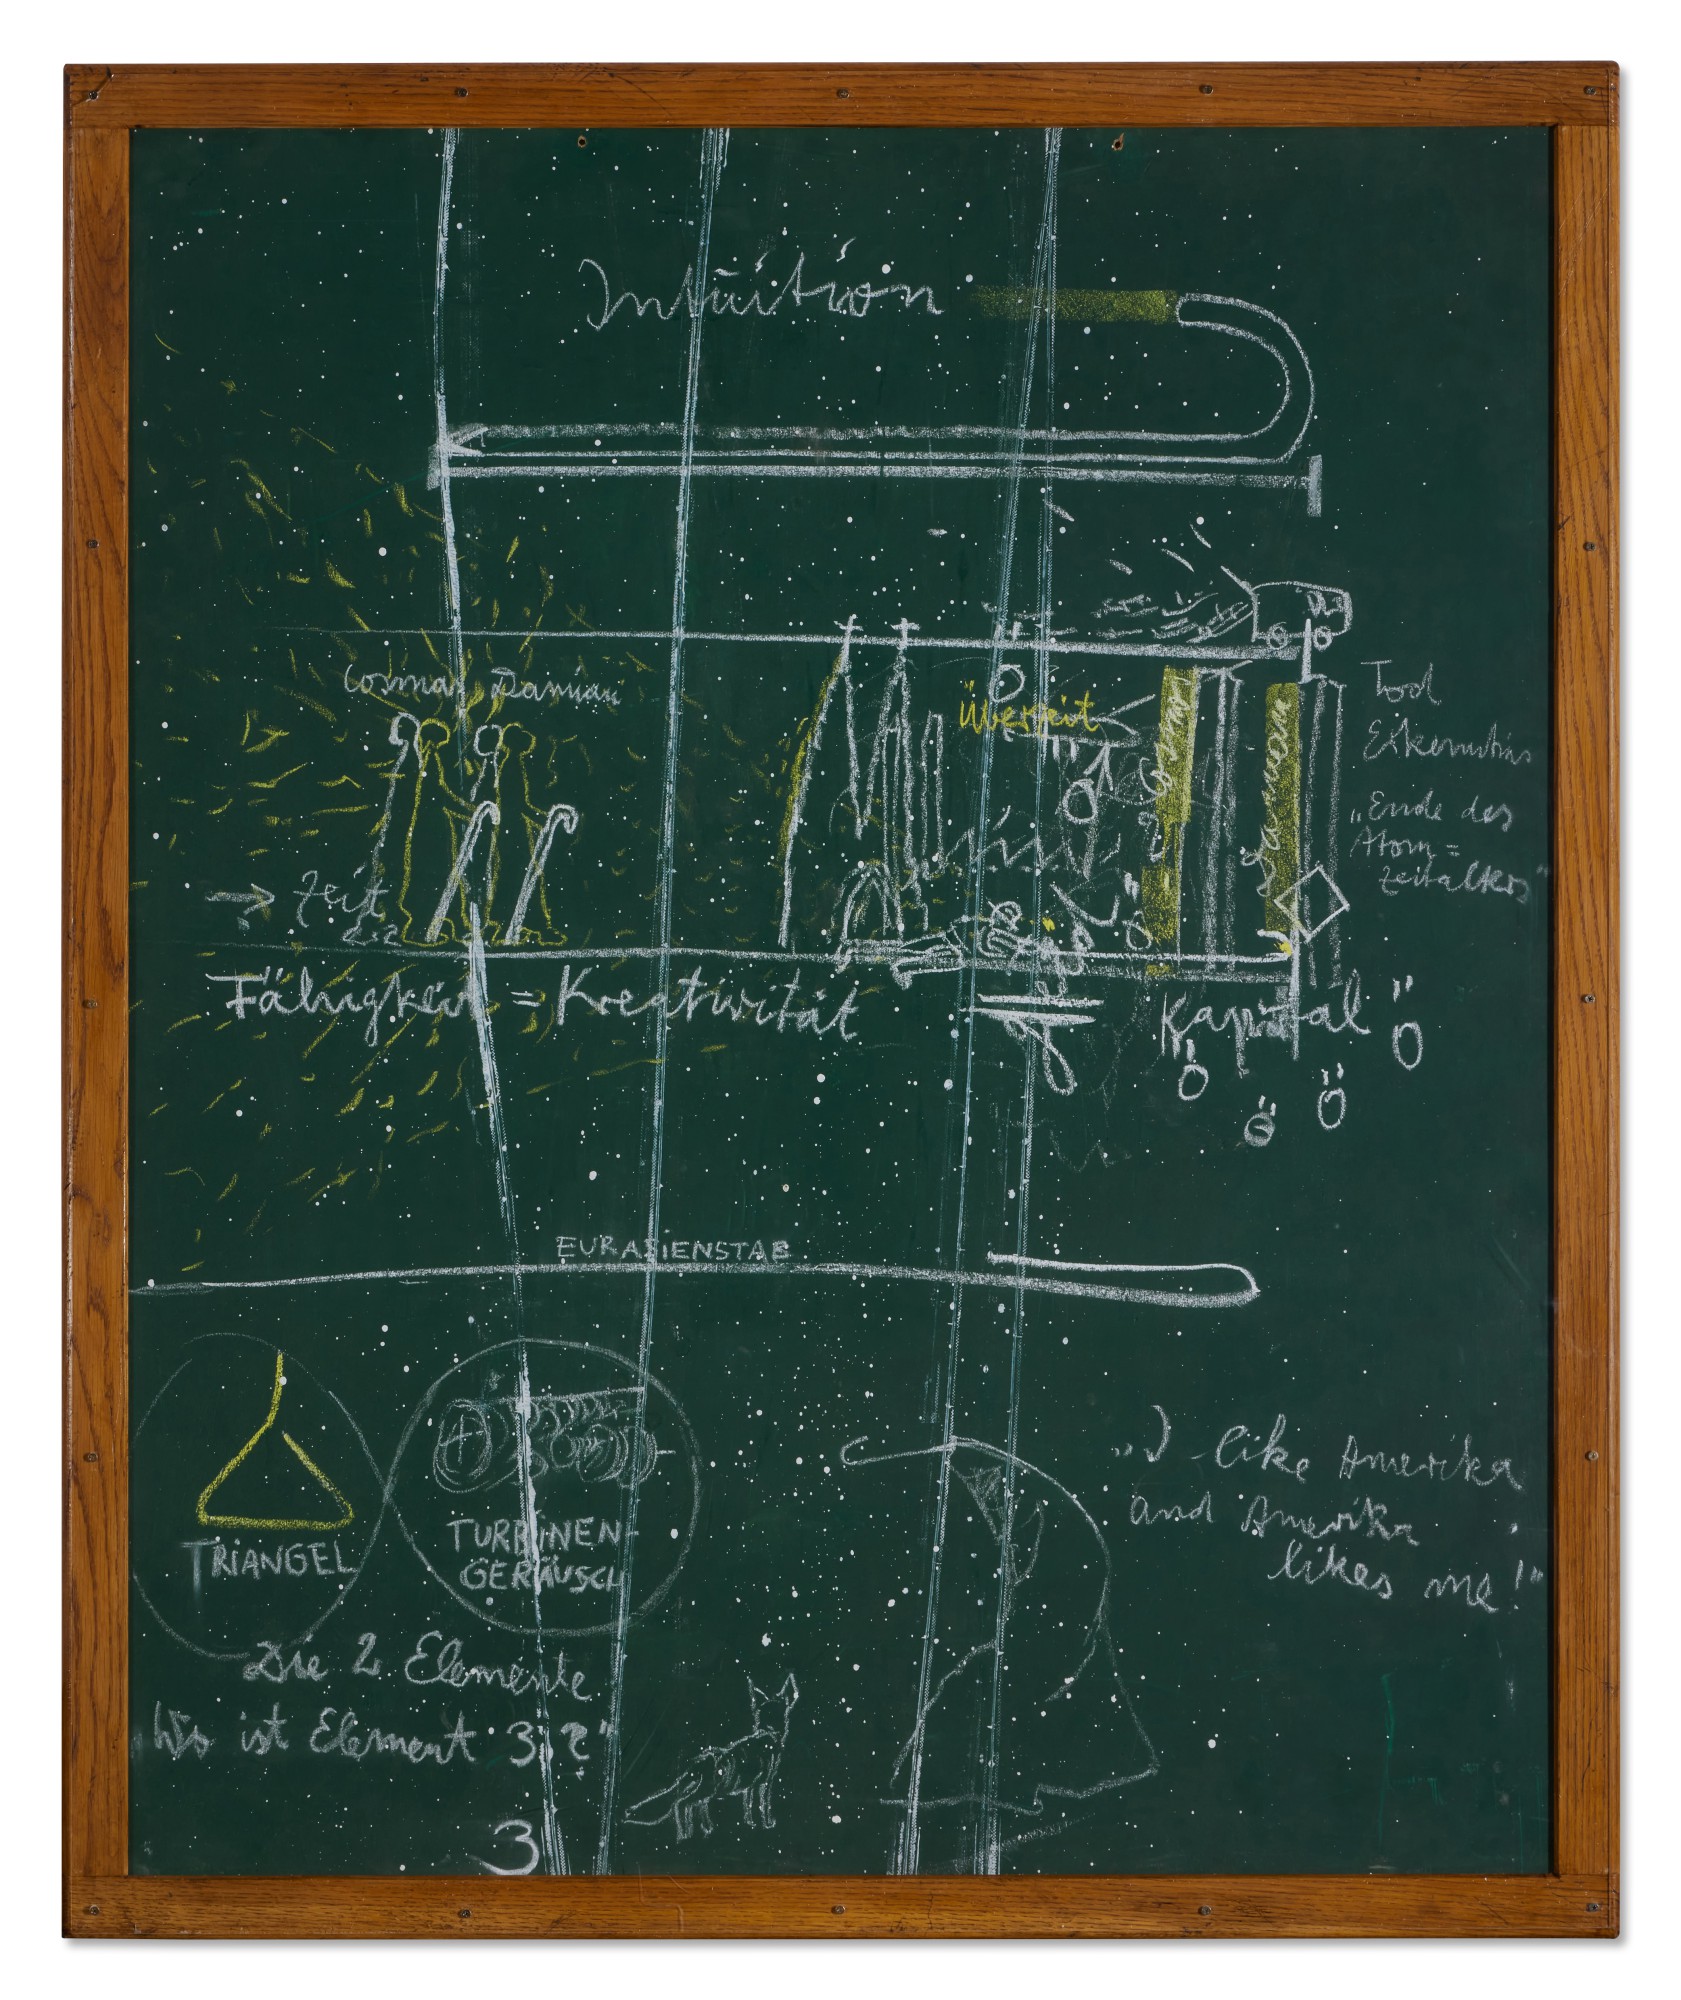 Intuition
Cosmas Damian
Überzeit
Cosmos
Damian
Tod
„Ende des
Atom=
zeitalters"
→ Zeit
Fähigkeit = Kreativität
Kapital
Ö
Ö
Ö
Ö
EURASIENSTAB
TRIANGEL
TURBINEN-
GERÄUSCH
„I like Amerika
and Amerika
likes me!"
Die 2 Elemente
ist Element 3?"
3